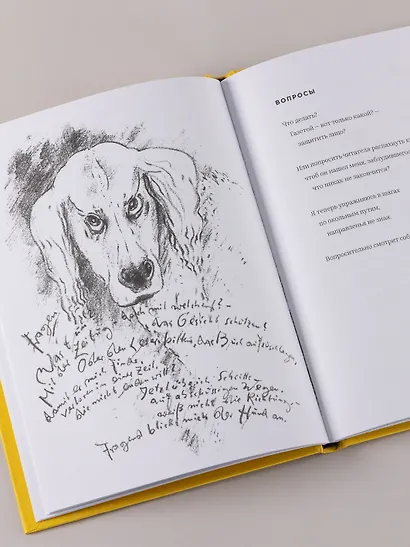 Fragen
Was tun?
Mit der Zeitung – doch mit welcher? –
das Gesicht schützen?
Oder den Leser bitten, das Buch aufzuschlagen,
damit er mich finde,
verloren in einer Zeile,
die nicht enden will?
Jetzt üb ich Schritte
auf Wegen,
weiß nicht die Richtung.
Fragend blickt mich der Hund an.
ВОПРОСЫ
Что делать?
Газетой – вот только какой? –
защитить лицо?
Или попросить читателя распахнуть к
чтоб он нашел меня, заблудившегос
что никак не закончится?
Я теперь упражняюсь в шагах
по окольным путям,
направленья не зная.
Вопросительно смотрит соб